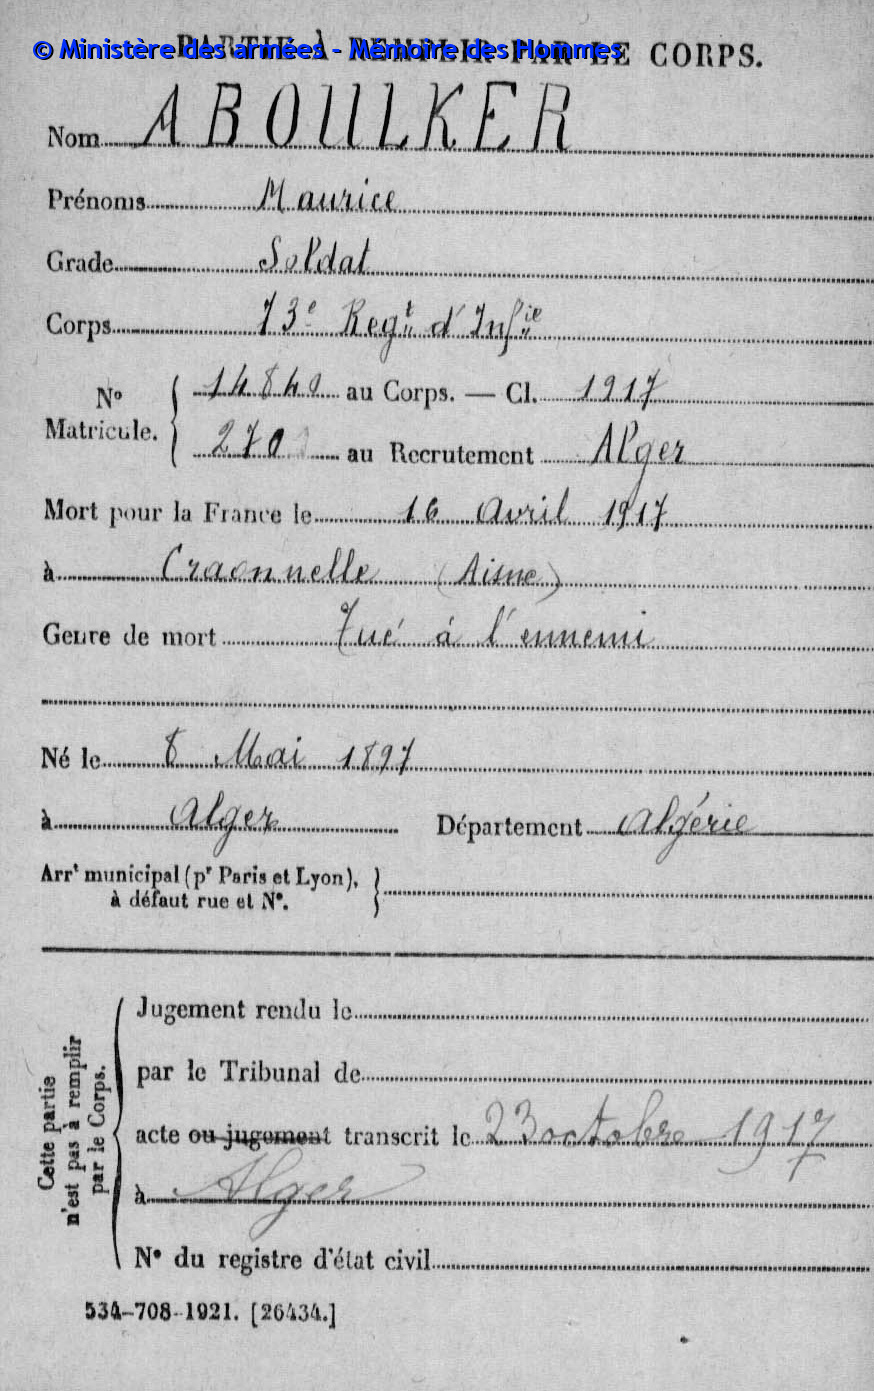 © Ministère des armées - Mémoire des Hommes
PARTIE À REMPLIR PAR LE CORPS.
Nom ABOULKER
Prénoms Maurice
Grade Soldat
Corps 73e Regt d'Infie
No Matricule. 14840 au Corps. — Cl. 1917
270 au Recrutement Alger
Mort pour la France le 16 Avril 1917
à Craonnelle (Aisne)
Genre de mort Tué à l'ennemi
Né le 8 Mai 1897
à Alger Département Algérie
Arrt municipal (pr Paris et Lyon),
à défaut rue et N°.
Cette partie
n'est pas à remplir
par le Corps.
Jugement rendu le
par le Tribunal de
acte ou jugement transcrit le 23 octobre 1917
à Alger
N° du registre d'état civil
534-708-1921. [26434.]